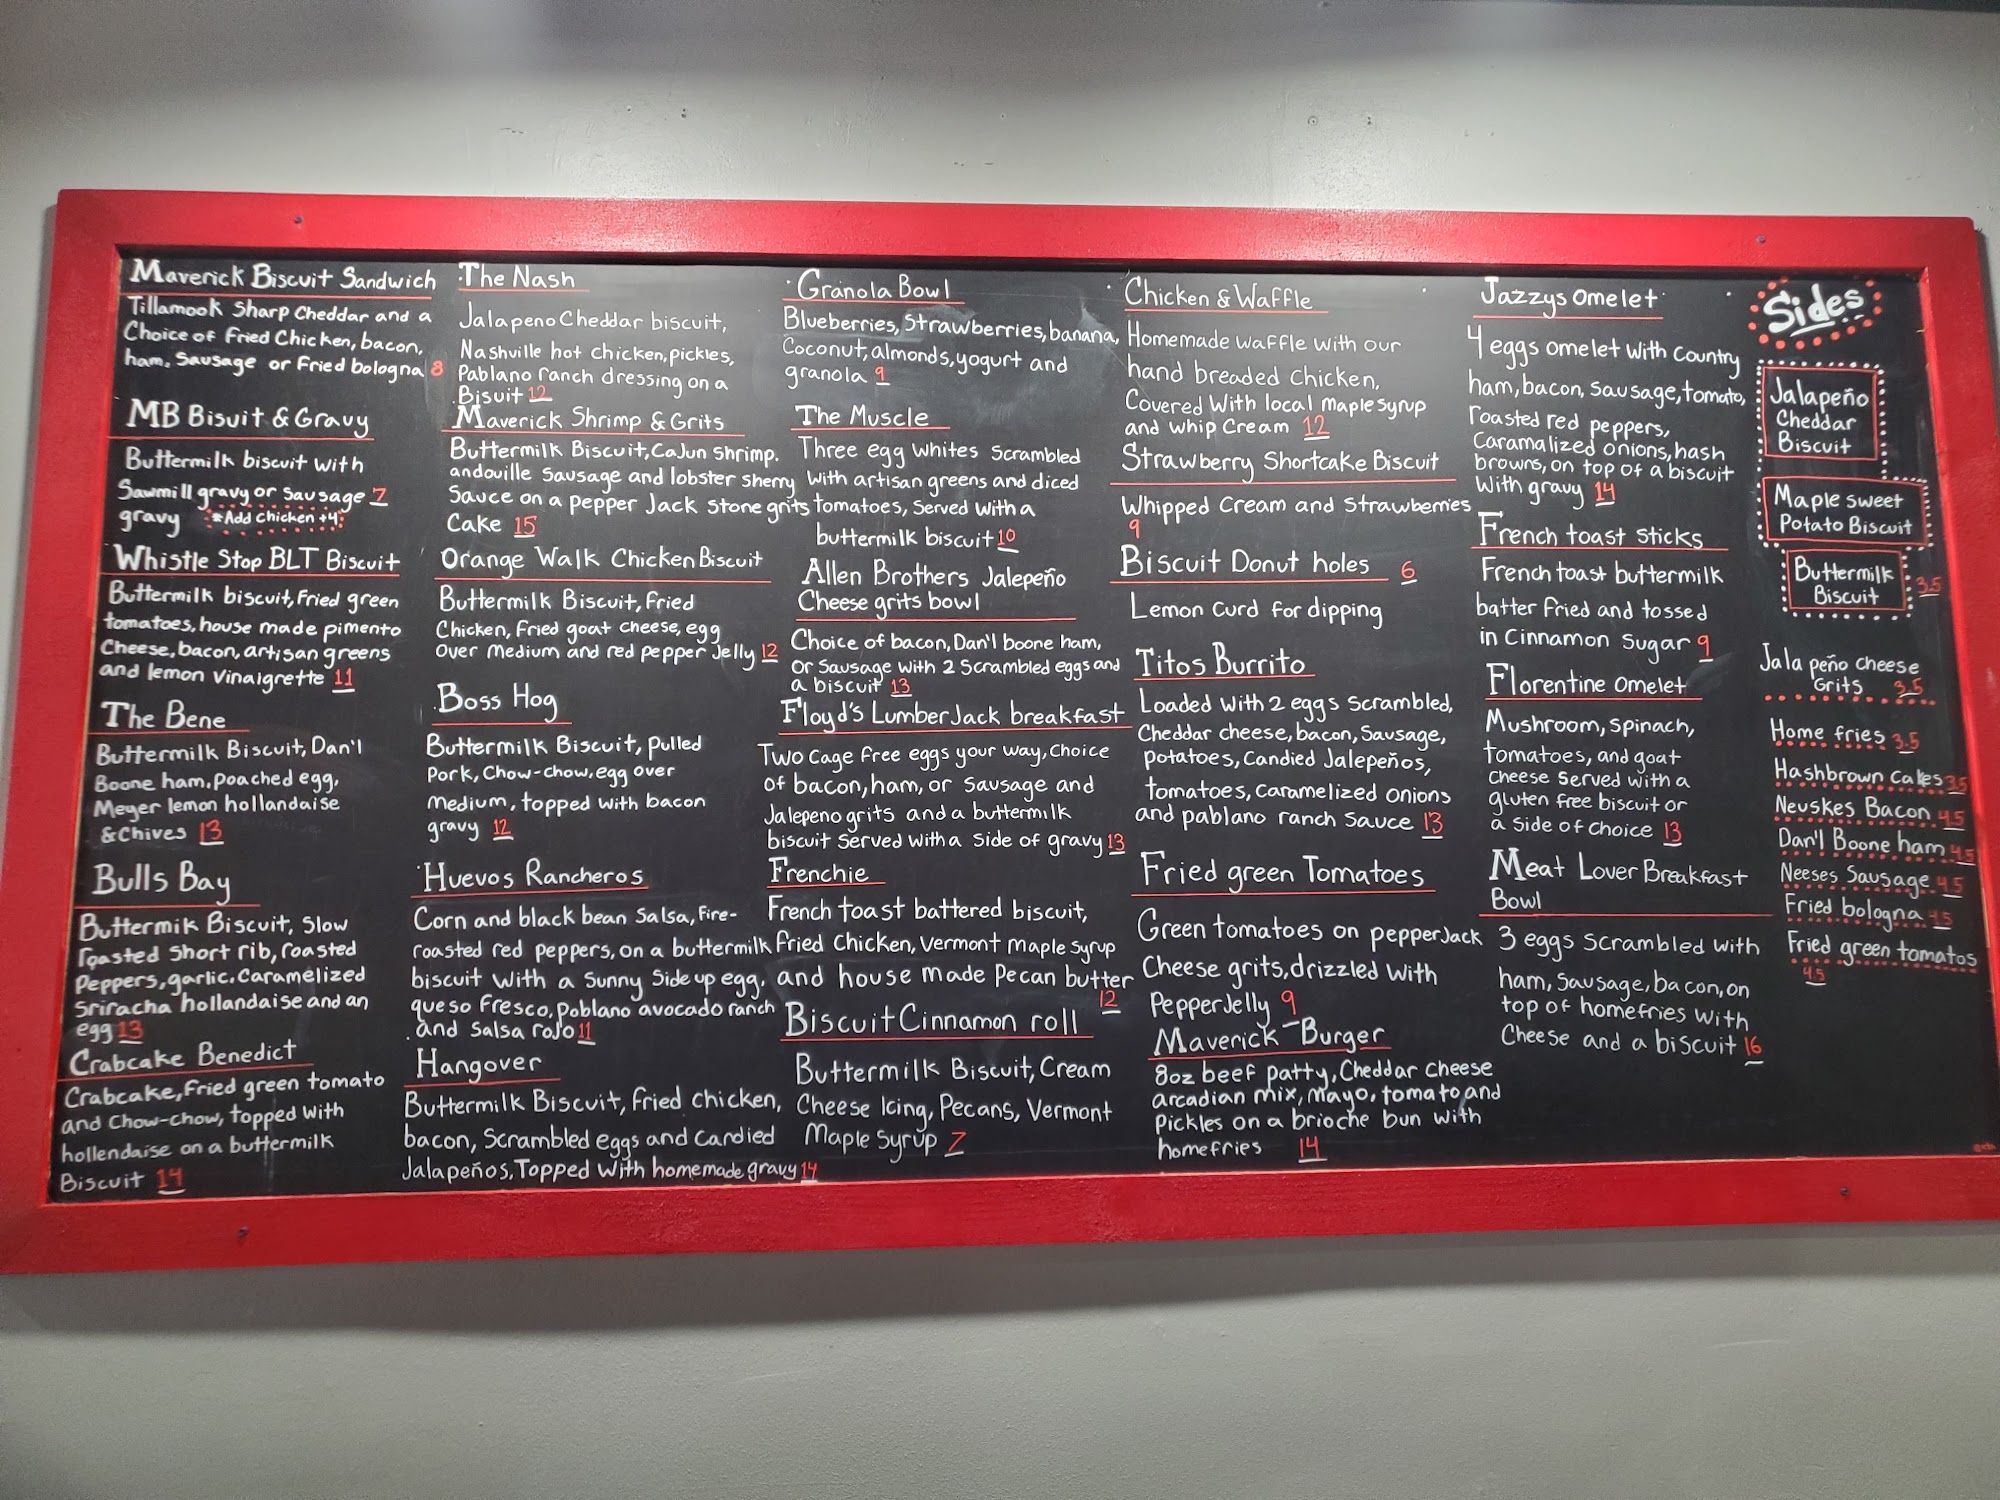 Maverick Biscuit Sandwich
Tillamook Sharp Cheddar and a
Choice of Fried Chicken, bacon,
ham, Sausage or Fried bologna 8
MB Bisuit & Gravy
Buttermilk biscuit with
Sawmill gravy or sausage 7
gravy *Add chicken +4
Whistle Stop BLT Biscuit
Buttermilk biscuit, Fried green
tomatoes, house made pimento
Cheese, bacon, artisan greens
and lemon vinaigrette 11
The Bene
Buttermilk Biscuit, Dan'l
Boone ham, poached egg,
Meyer lemon hollandaise
& Chives 13
Bulls Bay
Buttermik Biscuit, Slow
roasted Short rib, roasted
peppers, garlic. Caramelized
Sriracha hollandaise and an
egg 13
Crabcake Benedict
Crabcake, Fried green tomato
and Chow-Chow, topped with
hollendaise on a buttermilk
Biscuit 14
The Nash
Jalapeno Cheddar biscuit,
Nashville hot chicken, pickles,
Pablano ranch dressing on a
Bisuit 12
Maverick Shrimp & Grits
Buttermilk Biscuit, Cajun shrimp.
andouille Sausage and lobster sherry
Sauce on a pepper Jack Stone grits
Cake 15
Orange Walk Chicken Biscuit
Buttermilk Biscuit, Fried
Chicken, Fried goat cheese, egg
over medium and red pepper Jelly 12
Boss Hog
Buttermilk Biscuit, pulled
Pork, Chow-chow, egg over
medium, topped with bacon
gravy 12
Huevos Rancheros
Corn and black bean Salsa, Fire-
roasted red peppers, on a buttermilk
biscuit with a Sunny Side up egg,
queso Fresco, poblano avocado ranch
and Salsa rojo 11
Hangover
Buttermilk Biscuit, Fried chicken,
bacon, Scrambled eggs and Candied
Jalapeños, Topped with homemade gravy 14
Granola Bowl
Blueberries, Strawberries, banana,
Coconut, almonds, yogurt and
granola 9
The Muscle
Three egg whites scrambled
with artisan greens and diced
tomatoes, Served with a
buttermilk biscuit 10
Allen Brothers Jalepeño
Cheese grits bowl
Choice of bacon, Dan'l boone ham,
or Sausage with 2 Scrambled eggs and
a biscuit 13
Floyd's LumberJack breakfast
Two cage free eggs your way, choice
of bacon, ham, or Sausage and
Jalepeno grits and a buttermilk
biscuit Served with a side of gravy 13
Frenchie
French toast battered biscuit,
Fried Chicken, Vermont maple syrup
and house made Pecan butter
12
Biscuit Cinnamon roll
Buttermilk Biscuit, Cream
Cheese Icing, Pecans, Vermont
Maple Syrup 7
Chicken & Waffle
Homemade waffle with our
hand breaded Chicken,
Covered With local maple syrup
and whip Cream 12
Strawberry Shortcake Biscuit
Whipped Cream and Strawberries
9
Biscuit Donut holes 6
Lemon Curd for dipping
Titos Burrito
Loaded with 2 eggs Scrambled,
Cheddar cheese, bacon, Sausage,
potatoes, Candied Jalepeños,
tomatoes, Caramelized onions
and pablano ranch Sauce 13
Fried green Tomatoes
Green tomatoes on pepperJack
Cheese grits, drizzled with
PepperJelly 9
Maverick Burger
8oz beef patty, Cheddar cheese
arcadian mix, mayo, tomato and
Pickles on a brioche bun with
homefries 14
Jazzys Omelet
4 eggs omelet with Country
ham, bacon, sausage, tomato,
roasted red peppers,
Caramalized onions, hash
browns, on top of a biscuit
With gravy 14
French toast Sticks
French toast buttermilk
batter Fried and tossed
in Cinnamon Sugar 9
Florentine Omelet
Mushroom, Spinach,
tomatoes, and goat
Cheese Served with a
gluten free biscuit or
a side of choice 13
Meat Lover Breakfast
Bowl
3 eggs scrambled with
ham, sausage, bacon, on
top of homefries with
Cheese and a biscuit 16
Sides
Jalapeño
Cheddar
Biscuit
Maple Sweet
Potato Biscuit
Buttermilk
Biscuit 3.5
Jalapeño cheese
Grits 3.5
Home fries 3.5
Hashbrown cakes 3.5
Neuskes Bacon 4.5
Dan'l Boone ham 4.5
Neeses Sausage 4.5
Fried bologna 4.5
Fried green tomatos
4.5